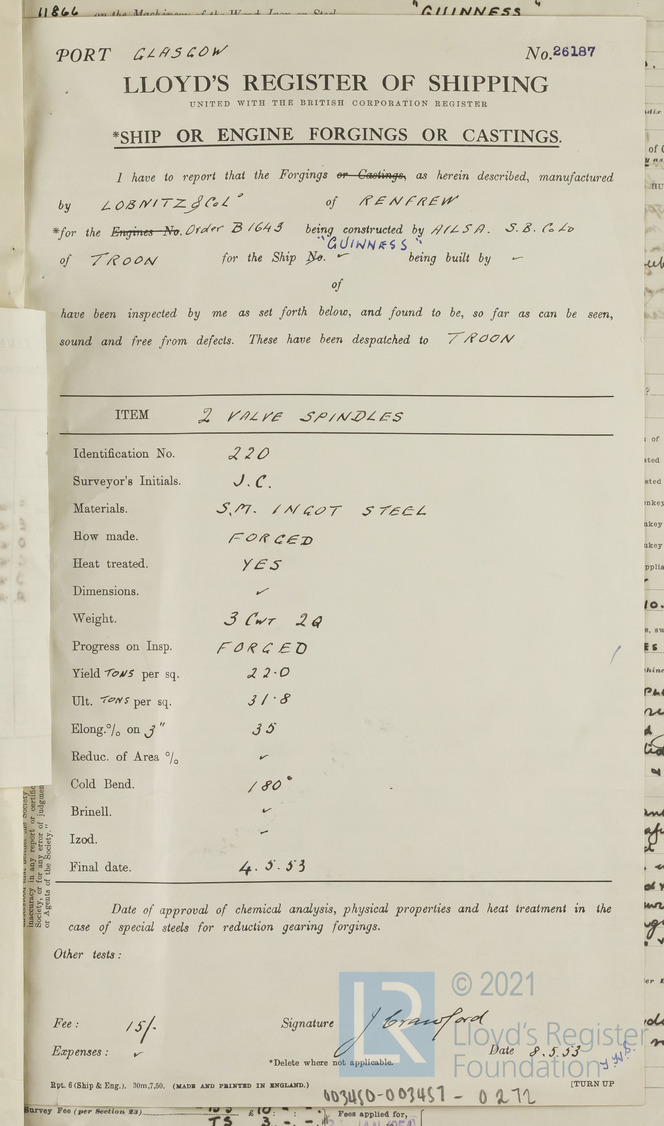 11866 on the Machinery of the Wood Iron or Steel "GUINNESS"
PORT GLASGOW No. 26187
LLOYD'S REGISTER OF SHIPPING
UNITED WITH THE BRITISH CORPORATION REGISTER
*SHIP OR ENGINE FORGINGS OR CASTINGS.
I have to report that the Forgings or Castings, as herein described, manufactured
by LOBNITZ & Co Lº of RENFREW
*for the Engines No. Order B 1643 being constructed by AILSA. S.B. Co Ld
"GUINNESS"
of TROON for the Ship No. ✓ being built by ✓
of
have been inspected by me as set forth below, and found to be, so far as can be seen,
sound and free from defects. These have been despatched to TROON
ITEM 2 VALVE SPINDLES
Identification No. 220
Surveyor's Initials. J.C.
Materials. S.M. INGOT STEEL
How made. FORGED
Heat treated. YES
Dimensions. ✓
Weight. 3 Cwt 2Q
Progress on Insp. FORGED
Yield TONS per sq. 22.0
Ult. TONS per sq. 31.8
Elong.% on 3" 35
Reduc. of Area % ✓
Cold Bend. 180°
Brinell. ✓
Izod. ✓
Final date. 4.5.53
Date of approval of chemical analysis, physical properties and heat treatment in the
case of special steels for reduction gearing forgings.
Other tests:
© 2021
Fee: 15/- Signature J Crawford
Lloyd's Register
Expenses: ✓ Date 8.5.53
Foundation
*Delete where not applicable.
Rpt. 6 (Ship & Eng.). 30m,7,50. (MADE AND PRINTED IN ENGLAND.) [TURN UP
003450-003457-0272
Survey Fee (per Section 23) Fees applied for,